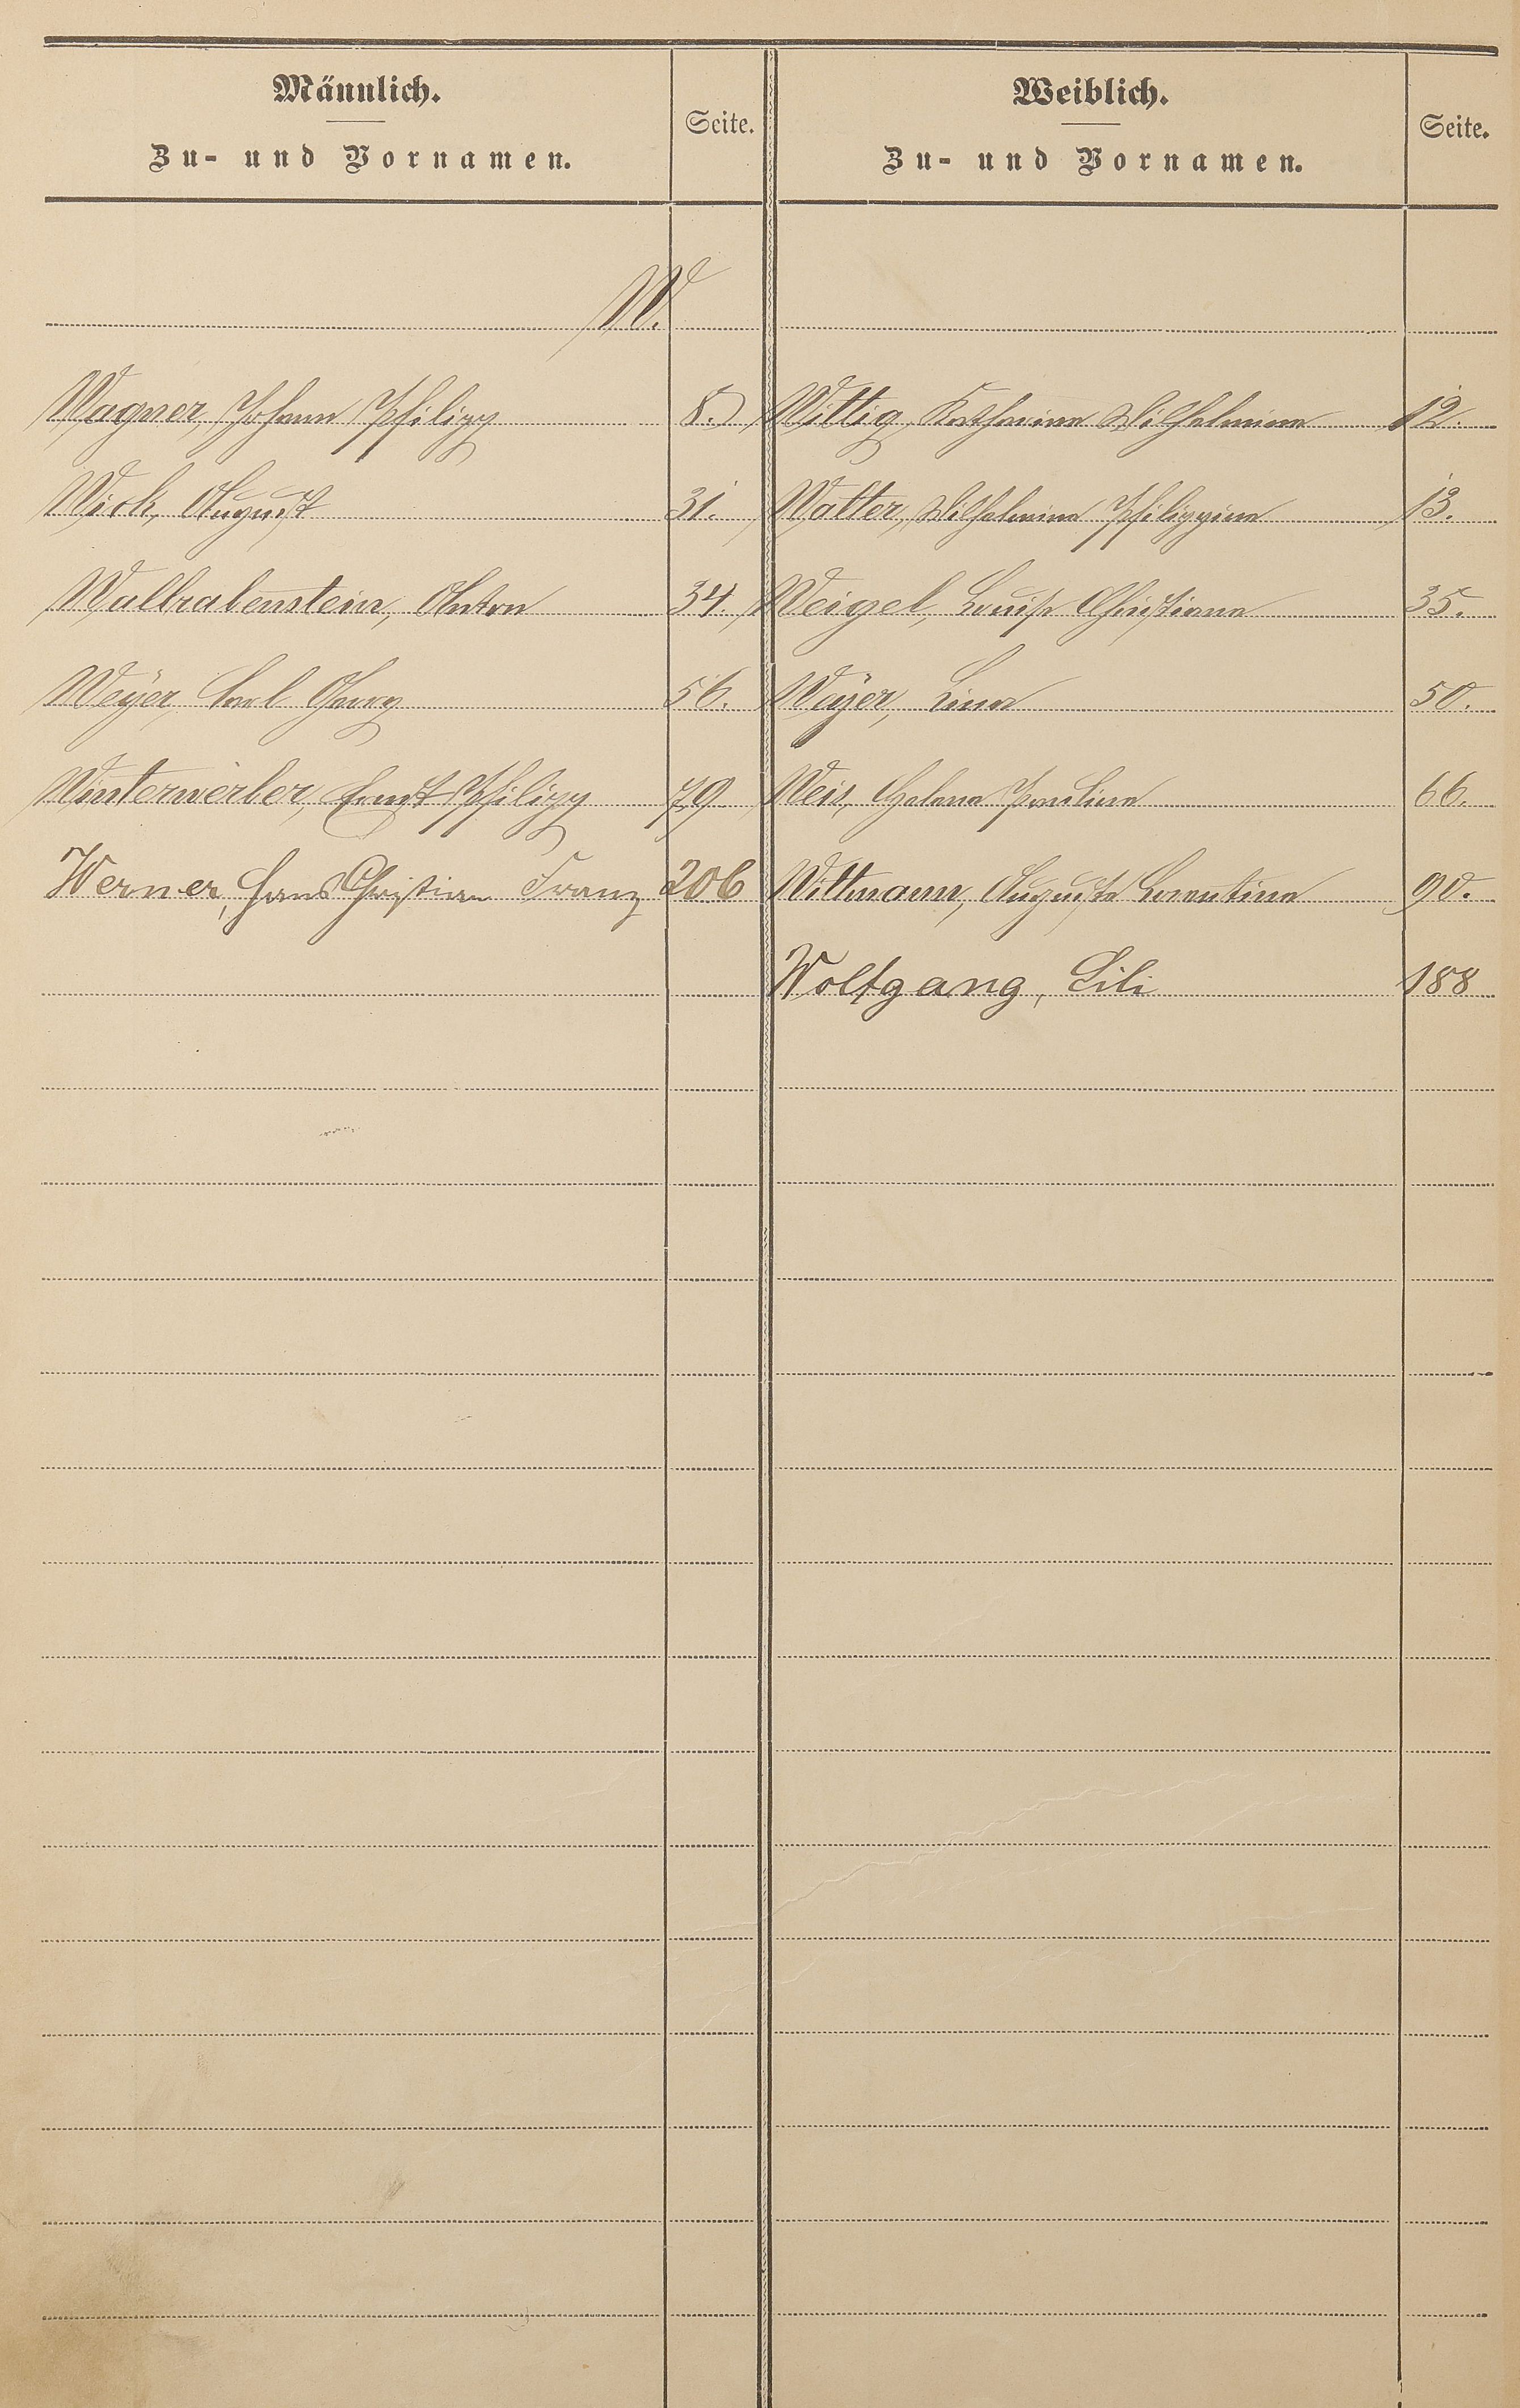 Männlich.
Zu- und Vornamen.
Seite.
Weiblich.
Zu- und Vornamen.
Seite.
W.
Wagner, Johann Philipp 8. Wittig, Katharina Wilhelmine 12.
Wick, August 31. Walter, Wilhelmine Philippine 13.
Wallrabenstein, Anton 34. Weigel, Louise Christiane 35.
Weÿer, Carl Georg 56. Weÿer, Lina 50.
Winterwerber, Ernst Philipp 79 Weis, Helene Pauline 66.
Werner, Hans Christian Franz 206 Wittmann, Auguste 90.
Wolfgang, Lili 188